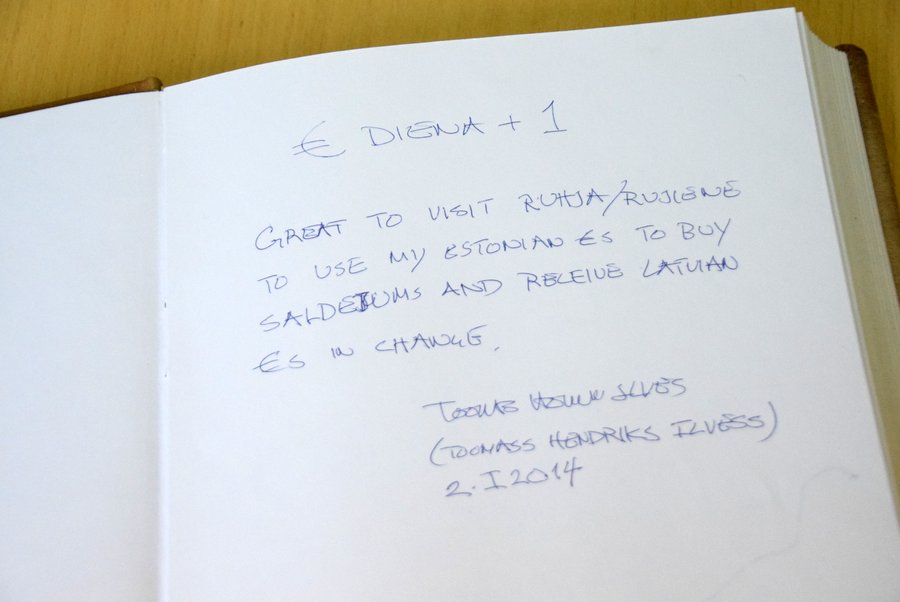 € DIENA + 1
GREAT TO VISIT RUHJA/RUJIENE
TO USE MY ESTONIAN €S TO BUY
SALDEJUMS AND RECEIVE LATVIAN
€S IN CHANGE.
TOOMAS HENDRIK ILVES
(TOOMASS HENDRIKS ILVESS)
2. I 2014